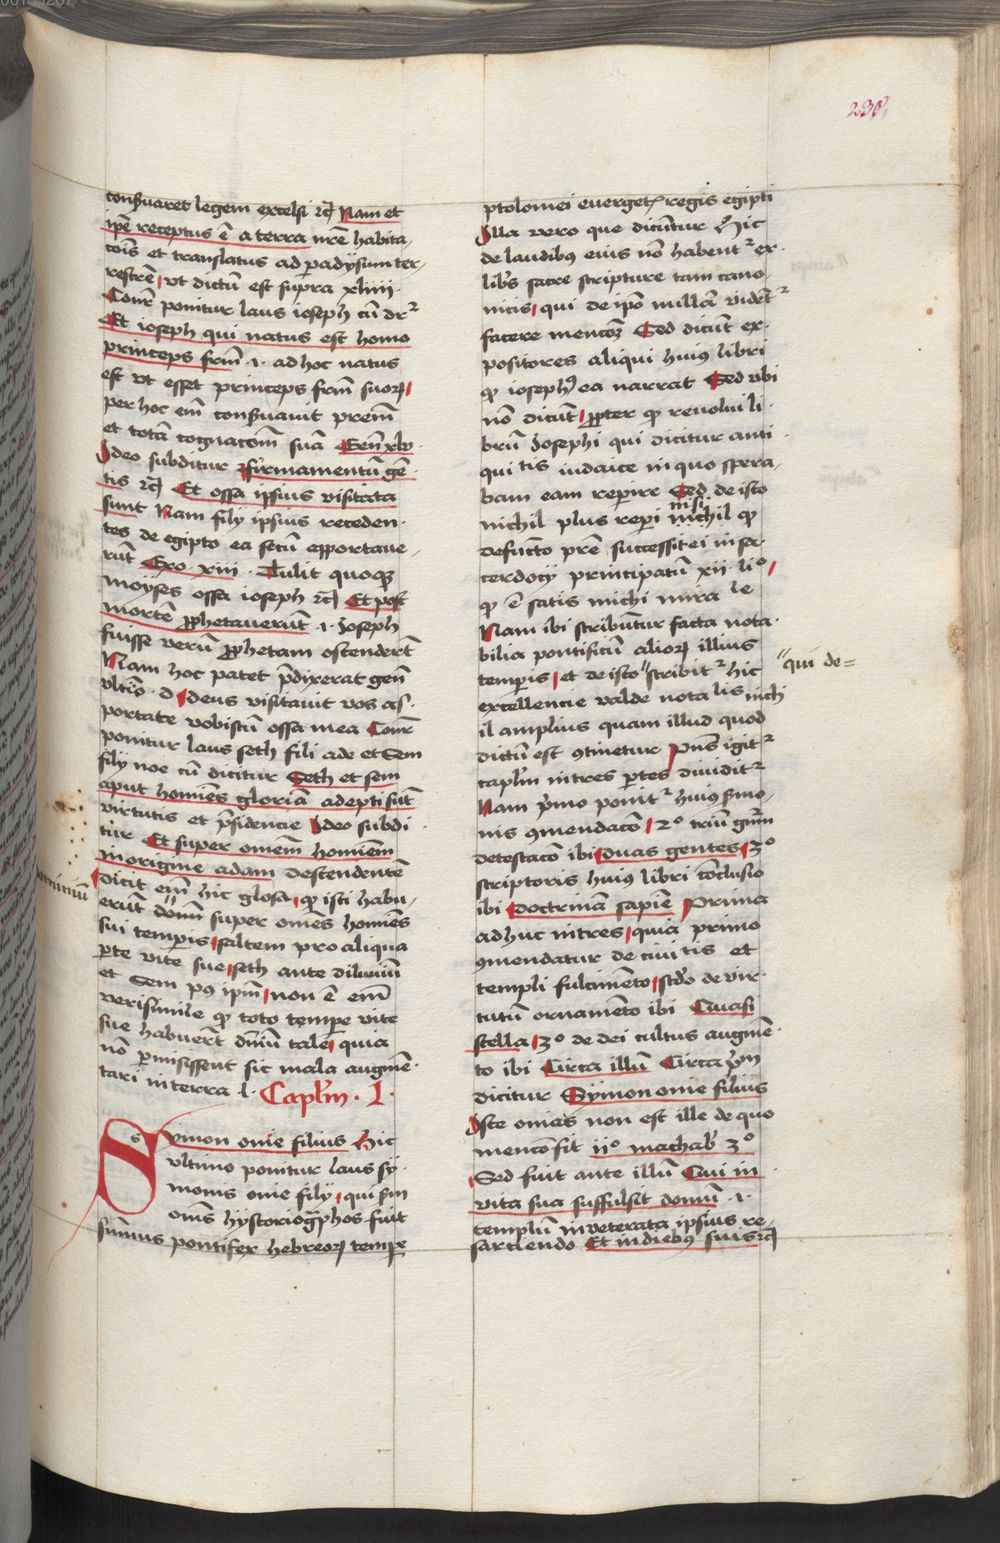 230
conſuaret legem excelſi rc̄ Nam et
ip̄e receptus ē a terra nr̄e habita
tōis et translatus ad padyſum ter
restrē ut dictū est supra xliiii
Conr̄ ponitur laus ioseph cū dr2
Et ioseph qui natus est homo
princeps frm̄ .i. ad hoc natus
est vt esset princeps frm̄ suoꝝ
per hoc em̄ conſuauit prem̄
et totā cognacōm̄ suā Gen̄ xlv
Ideo subditur firmamentū gē
tis rc̄ Et ossa ipsius visitata
sunt Nam filij ipsius receden
tes de egipto ea secū apportaue
rūt Exo. xiii. Tulit quoqꝫ
moyses ossa ioseph rc̄ Et post
mortē ꝓphetauerūt .i. Joseph
fuisse verū ꝓphetam ostenderūt
Nam hoc patet p̄dixerat gen̄
vltīo. d. deus visitauit vos as.
portate vobiscū ossa mea Conr̄
ponitur laus seth fili ade et Sem
filij noe cū dicitur Seth et sem
aput homīes gloriā adepti sūt
virtutis et p̄sidencie Ideo subdi
tur Et super omēm homīem
in origine adam Descendentē
dicit em̄ hic glosa ꝙ isti habu
erūt domū super omēs homīes
sui temꝑis saltem pro aliqua
ꝑte vite sue seth ante diluuiū
et Sem pꝰ ipm̄ non ē em̄
verisimile ꝙ toto tempe vite
sue habuer̄t dn̄iū tale quia
nō ꝑmisissent sic mala augmē
tari in terra .l. Capl̄m . L.
Symon onie filius Hic
vltimo ponitur laus sy
monis onie filij qui ẜm
om̄s hystoriog̃phos fuit
sūmus pontifex hebreoꝝ tempe
ptolomei euergetꝭ regis egipti
Illa vero que dicūtur Hic
de laudibus eius nō habent2 ex
libr̄s sacre scripture tam cano
nicis qui de ip̄o nullā vidēt2
facere mencōꝫ Sed dicūt ex
positores aliqui huiꝰ libri
ꝙ iosephꝰ ea narrat Sed vbi
nō dicūt ꝓpter ꝙ reuolui li
brū Josephi qui dicitur anti
qui tis iudaice in quo spera
bam eam reperire Sed de isto
nisi
nichil plus reperi nichil ꝙ
defuncto prē successit ei in sa
cerdocij principatū xii. lio
ꝙ ē satis michi mira le
Nam ibi scributur facta nota
bilia pontificū alioꝝ illius
temꝑis et de isto " scribit2 hic
"qui de=
excellencie valde nota lis nich
il amplius quam illud quod
dictū est ꝯtinetur Pn̄s igit2
capl̄m in tres ꝑtes diuidit2
Nam p̄mo ponit2 huiꝰ ẜmo
nis ꝯmendacō 2o triū gn̄m
detestacō ibi duas gentes 3o
scriptoris huiꝰ libri cōclusio
ibi Doctrinā sapiē Prima
adhuc in tres quia primo
ꝯmendatur de ciui tis et
templi fulcimēto scdo de vir
tutū ornamēto ibi Quasi
stella 3o de dei cultus augmē
to ibi Circa illū Circa p̄m
dicitur Symon onie filius
Iste onias non est ille de quo
mencō fit iio machab 3o
Sed fuit ante illū Qui in
vita sua suffulsit domū .i.
templū inveterata ipsius re
sarciendo Et in diebꝰ suis rc̄